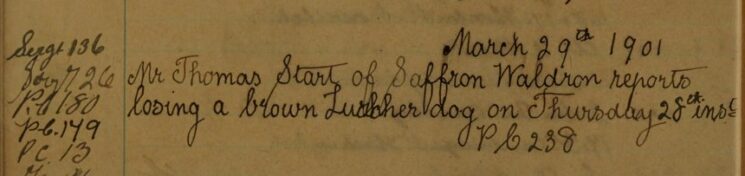 March 29th 1901
Sergt 136
Mr Thomas Start of Saffron Waldron reports
726
losing a brown Lurcher dog on Thursday 28th inst
P.C 180
P.C. 179
P C 238
P C. 13